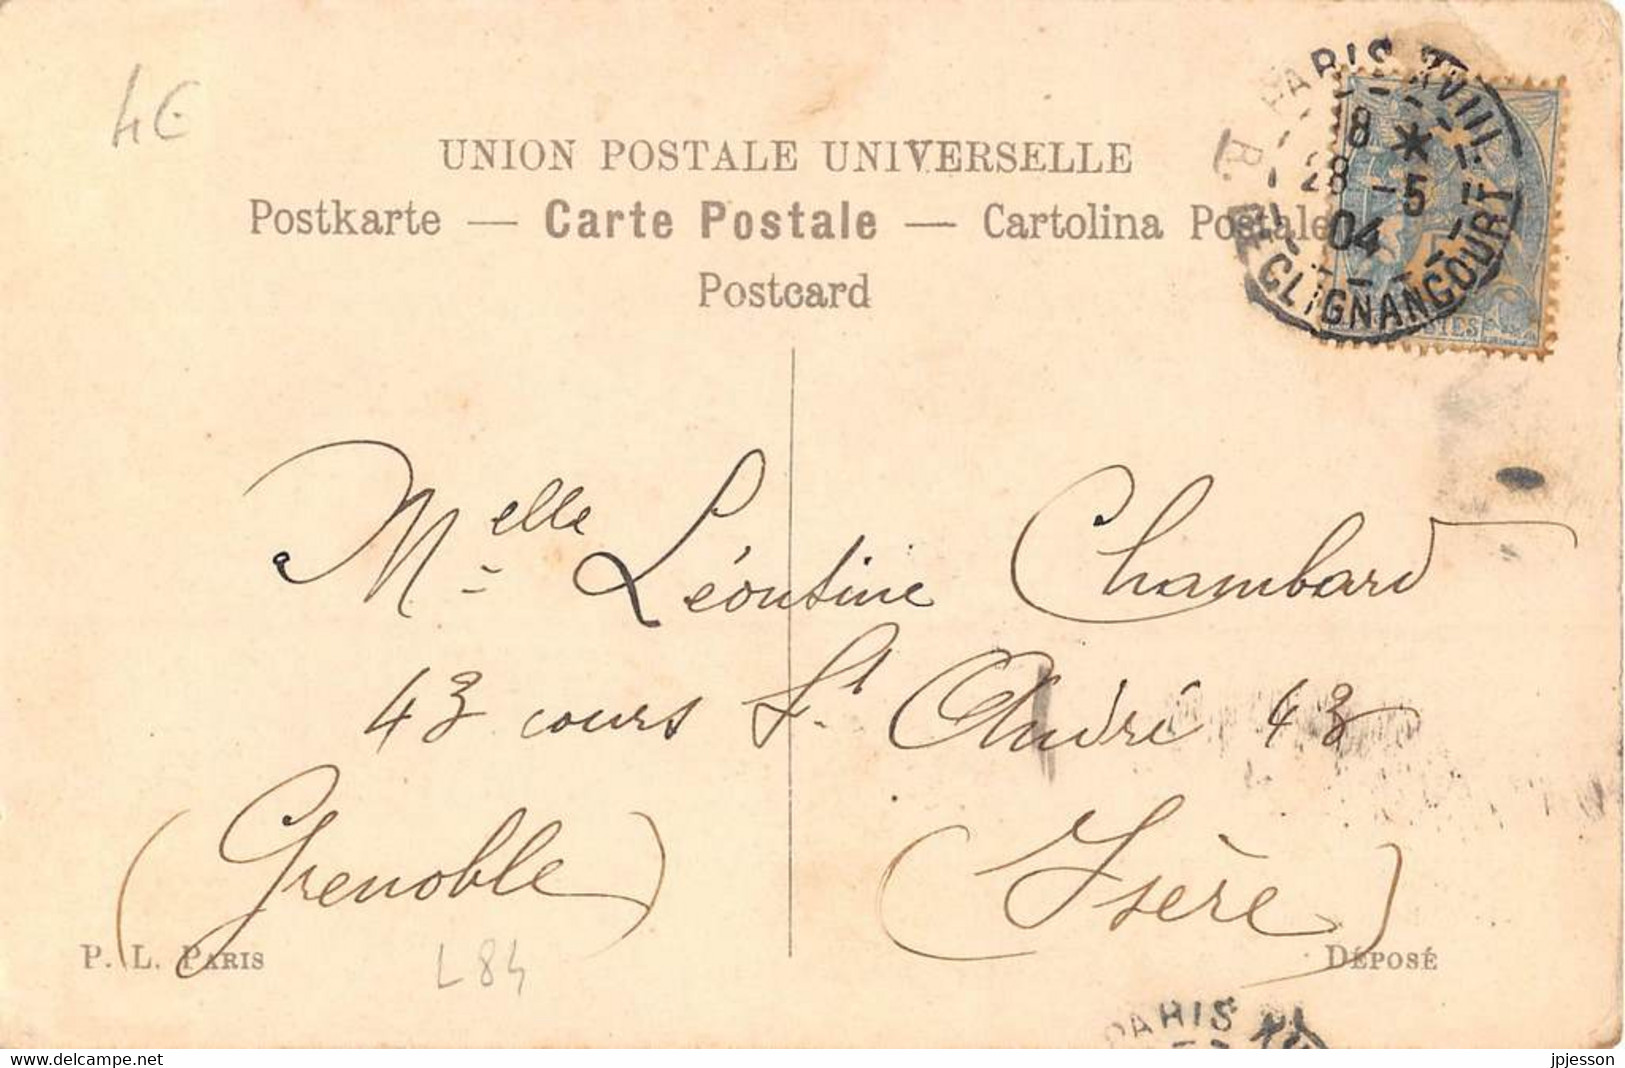 4€
UNION POSTALE UNIVERSELLE
Postkarte — Carte Postale — Cartolina Postale
Postcard
PARIS XVIII
R. DE CLIGNANCOURT
18 *
28 -5
04
Melle Léontine Chambard
43 cours St André 43
(Grenoble) (Isère)
P. L. PARIS
L84
DÉPOSÉ
PARIS XVIII
www.delcampe.net
jpjesson